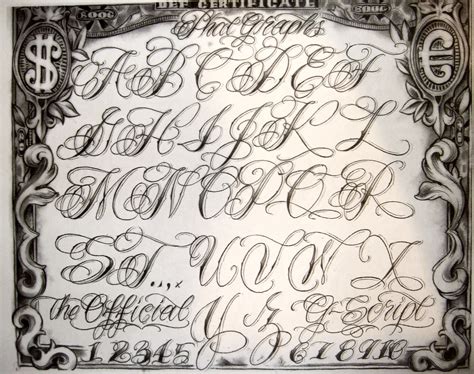 DEF CERTIFICATE
Phat Graphs
$ €
A B C D E F
G H I J K L
M N O P Q R
S T . , , U V W X
the Official Y Z G-Script
1 2 3 4 5 6 7 8 9 10